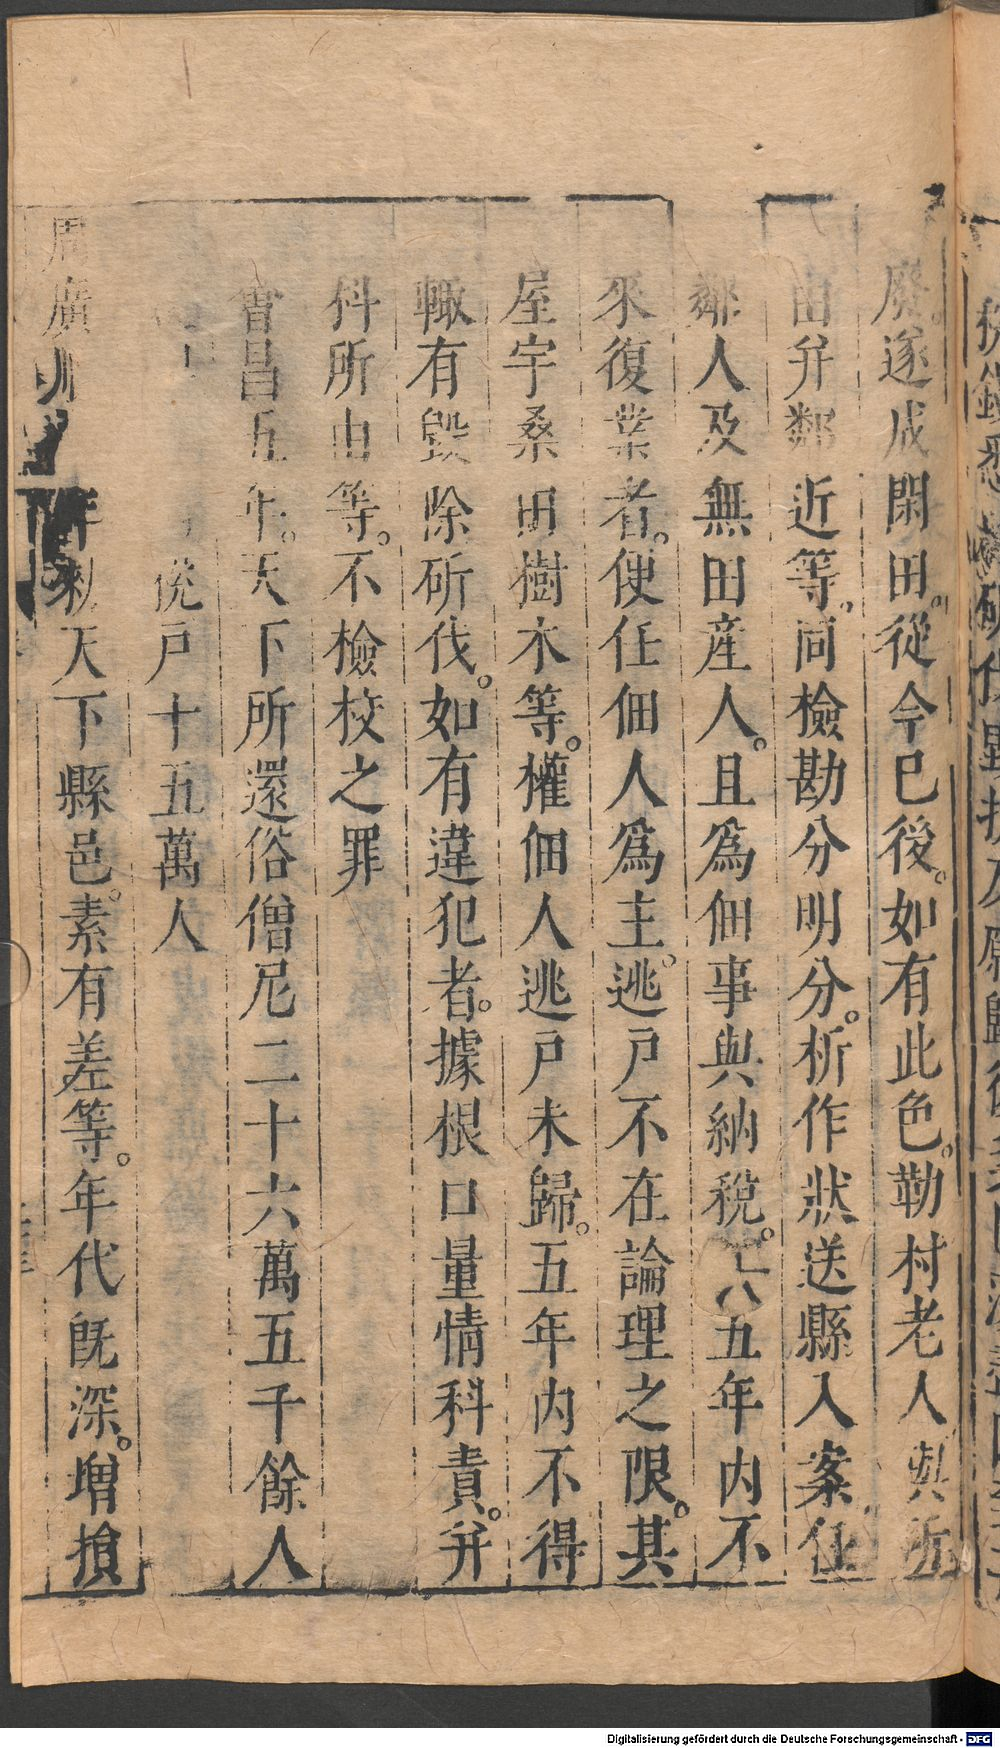 廢。遂成閑田。從今已後。如有此色。勒村老人與所
由并鄰近等。同檢勘分明。分析作狀送縣入案。任
鄰人及無田産人。且爲佃事與納稅。如五年內不
來復業者。便任佃人爲主。逃戸不在論理之限。其
屋宇桑田樹木等。權佃人逃戸未歸。五年內不得
輙有毀除斫伐。如有違犯者。據根口量情科責。并
科所由等。不檢校之罪
會昌五年。天下所還俗僧尼二十六萬五千餘人
稅戸十五萬人
周廣 年勑天下縣邑。素有差等。年代旣深。增損
Digitalisierung gefördert durch die Deutsche Forschungsgemeinschaft - DFG